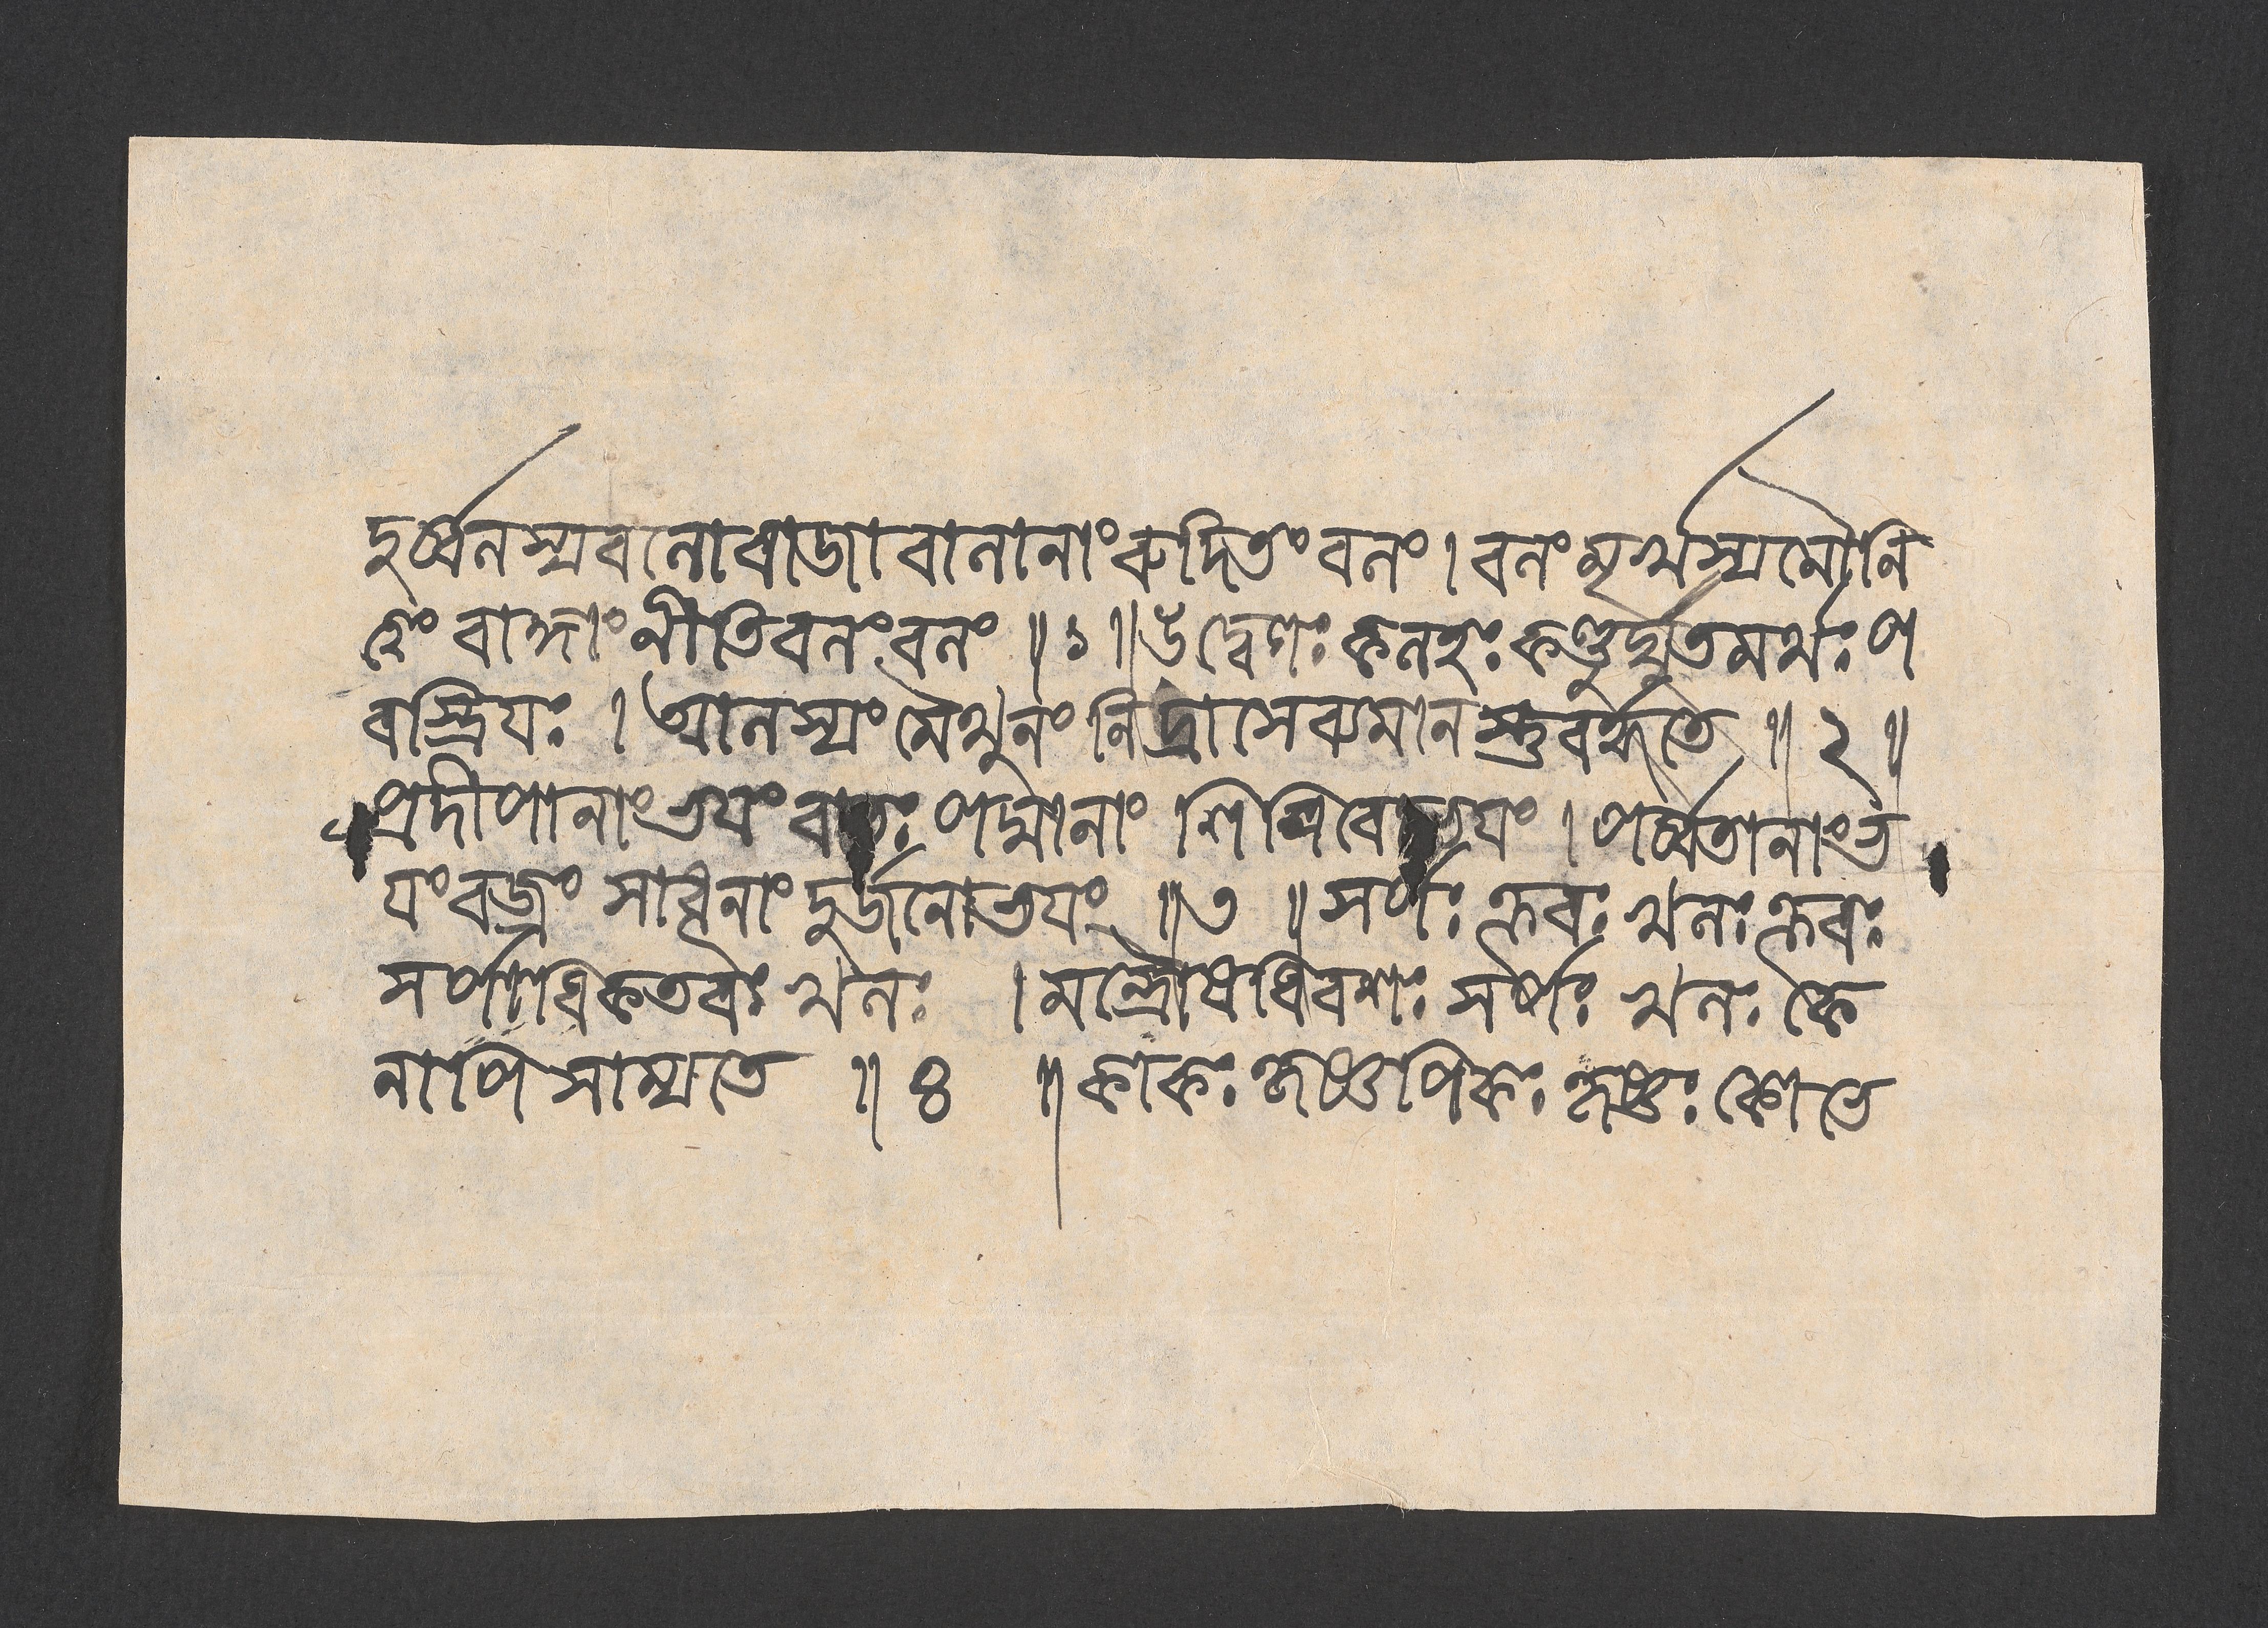 দুর্ব্বলস্যবলোরাজাবালানাং রুদিতং বলং । বলং মূর্খস্যমৌনি
ত্বং রাজ্ঞাং নীতিবলং বলং ॥ ১ ॥ উদ্বেগঃ কলহঃ কণ্ডুর্দ্যূতমর্থঃ প
রস্ত্রিয়ঃ । আলস্যং মৈথুনং নিদ্রাসেব্যমানস্তুবর্দ্ধতে ॥ ২ ॥
প্রদীপানাংভয়ং বাতঃ পদ্মানাং শিশিরোভয়ং । পর্ব্বতানাংভ
য়ং বজ্রং সাধুনাং দুর্জনোভয়ং ॥ ৩ ॥ সর্পঃ ক্রূরঃ খলঃ ক্রূরঃ
সর্পাধিকতরঃ খলঃ । মন্ত্রৌষধিবশঃ সর্পঃ খলঃ কে
নাপি সাম্যতে ॥ ৪ ॥ কাকঃ কৃষ্ণপিকঃ কৃষ্ণঃ কোভে